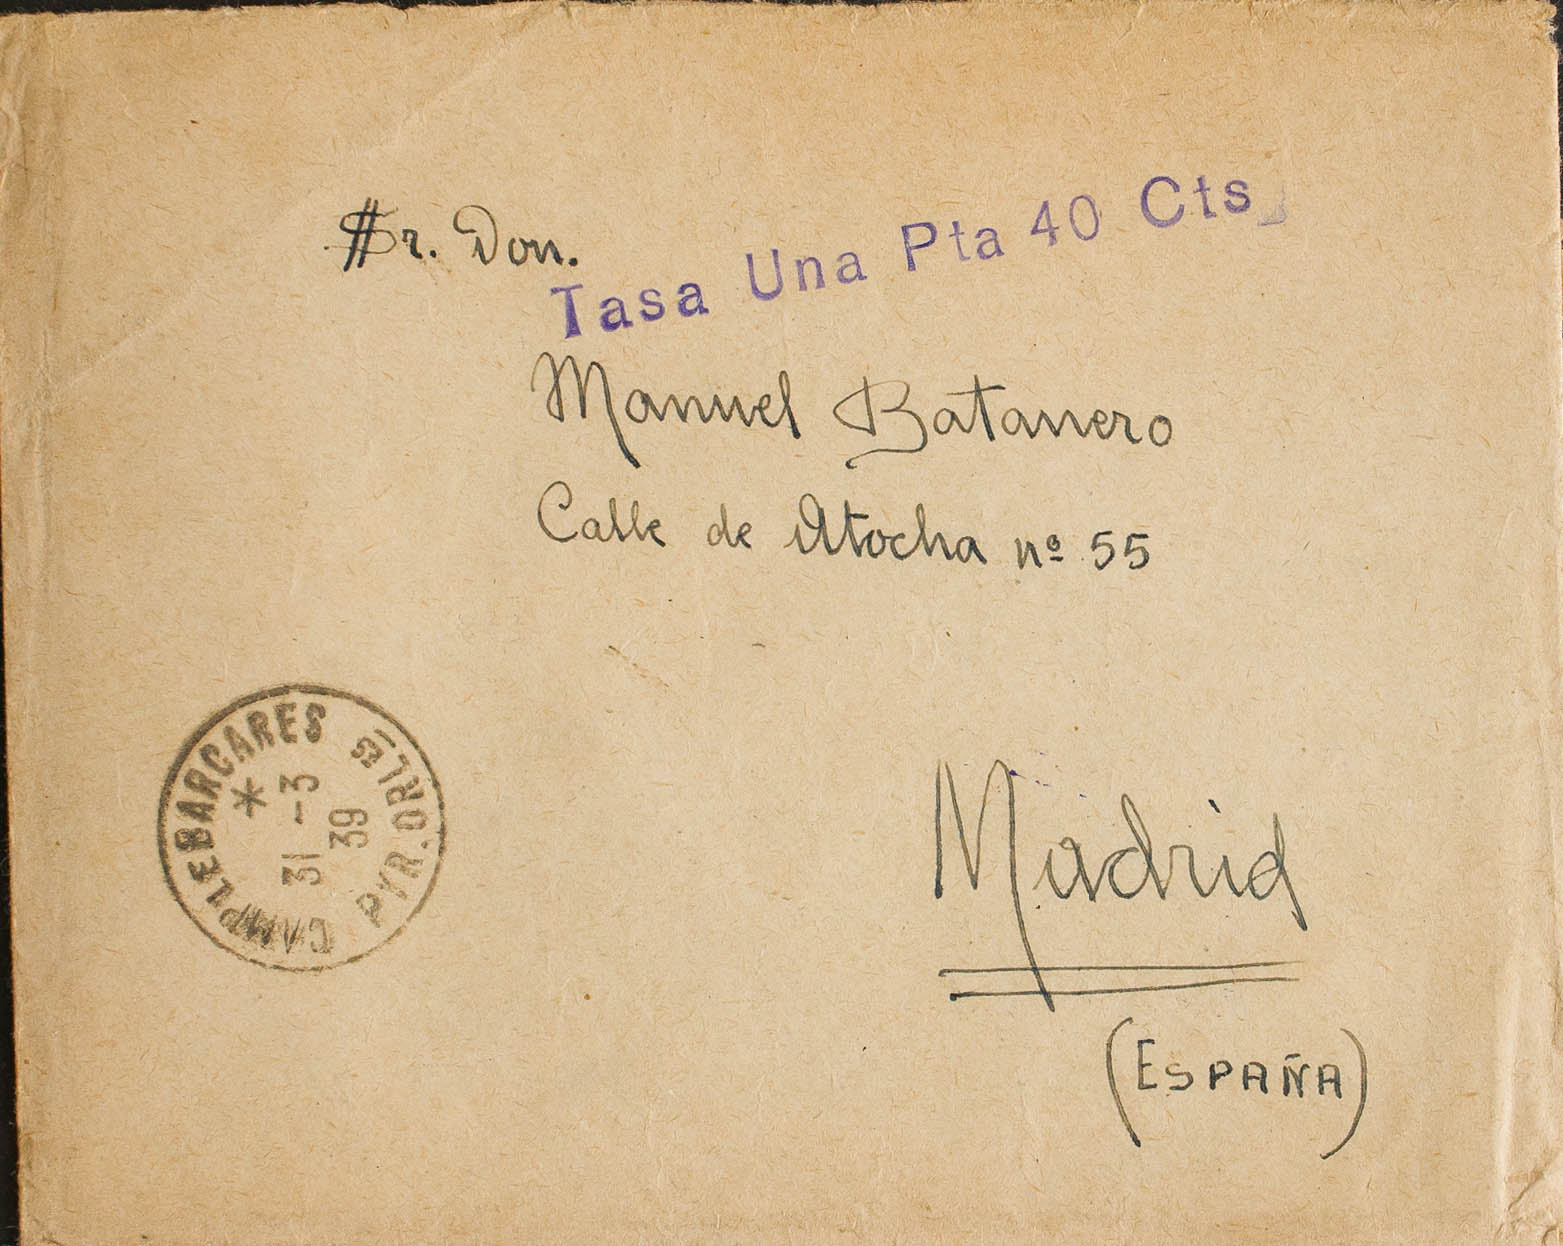 Sr. Don.
Tasa Una Pta 40 Cts
Manuel Batanero
Calle de Atocha nº 55
CAMP LE BARCARES
PYR. ORLES
*
31 -3
39
Madrid
(ESPAÑA)